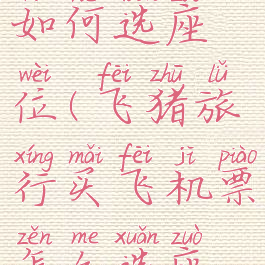 如何选座
wèi fēi zhū lǚ
位(飞猪旅
xíng mǎi fēi jī piào
行买飞机票
zěn me xuǎn zuò
怎么选座